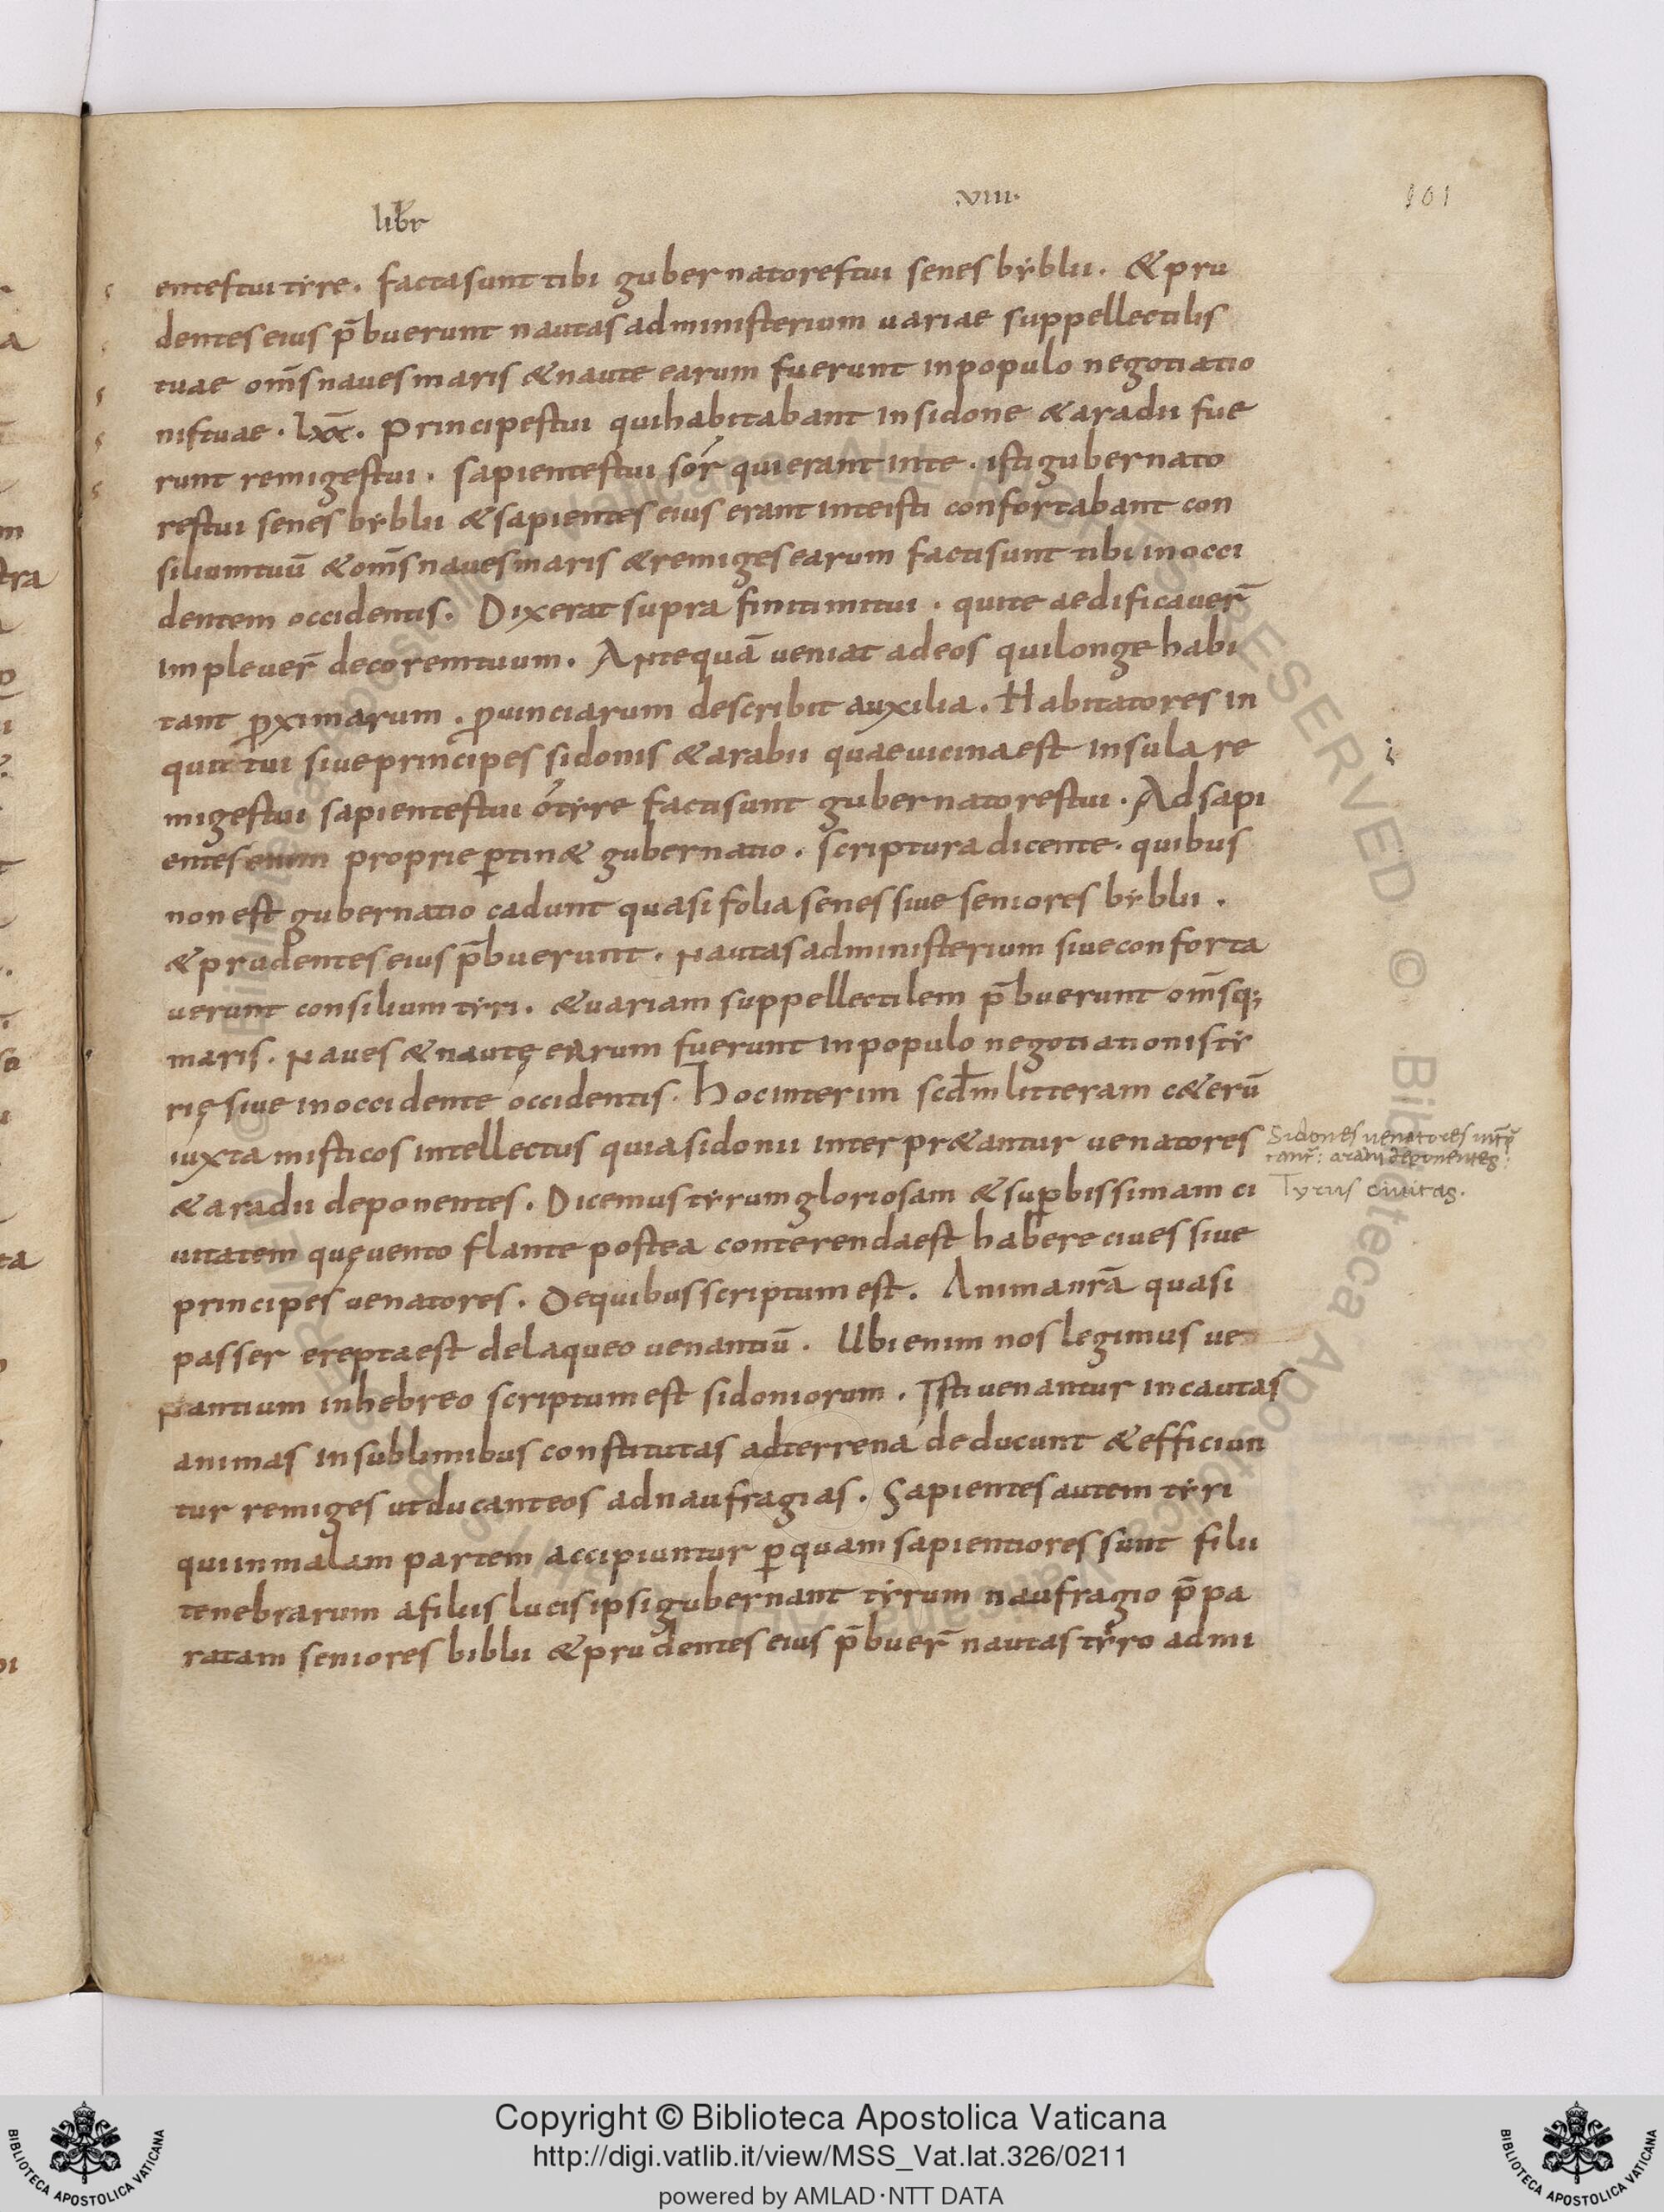 libr VIIII.
101
entestui tyre. factasunt tibi gubernatorestui senes byblii. & pru
dentes eius p̄buerunt nautas administerium uariae suppellectilis
tuae om̄s naues maris & naute earum fuerunt inpopulo negotiatio
nistuae. lxx̄. Principestui quihabitabant insidone & aradii fue
runt remigestui. sapientestui sór quierant inte. isti gubernato
restui senes byblii & sapientes eius erant inteisti confortabant con
siliumtuū & om̄s naues maris & remiges earum factisunt tibi inocci
dentem occidentis. Dixerat supra finitimitui. quite aedificauer̄
impleuer̄ decoremtuum. Antequā ueniat adeos quilonge habi
tant ꝓximarum. ꝓuinciarum describit auxilia. Habitatores in
quit tui siueprincipes sidonis & arabii quaeuicinaest insula re
migestui sapientestui ótyre factisunt gubernatorestui. Adsapi
entes enim proprie ꝑtin& gubernatio. scriptura dicente. quibus
non est gubernatio cadunt quasi folia senes siue seniores byblii.
& prudentes eius p̄buerunt. Nautas administerium siue conforta
uerunt consilium tyri. & uariam suppellectilem p̄buerunt om̄sq;
maris. Naues & nautę earum fuerunt inpopulo negotiationis ty
rię siue inoccidente occidentis. Hocinterim scdm̄ litteram c&erū
iuxta misticos intellectus quia sidonii interpr&antur uenatores
& aradii deponentes. Dicemus tyrum gloriosam & suꝑbissimam ci
uitatem quę uento flante postea conterendaest habere ciues siue
principes uenatores. Dequibus scriptum est. Animanr̄a quasi
passer ereptaest delaqueo uenantiū. Ubi enim nos legimus ue
nantium inhebreo scriptum est sidoniorum. Isti uenantur incautas
animas insublimibus constitutas adterrena deducunt & efficiun
tur remiges utducanteos adnaufragias. Sapientes autem tyri
quiinmalam partem accipiuntur ꝑquam sapientiores sunt filii
tenebrarum afiliis lucis ipsi gubernant tyrum naufragio p̄pa
ratam seniores biblii & prudentes eius p̄buer̄ nautas tyro admi
Sidones uenatores int̄p̄
tant̄: aradii deponentes:
Tyrus ciuitas.
Copyright © Biblioteca Apostolica Vaticana
http://digi.vatlib.it/view/MSS_Vat.lat.326/0211
powered by AMLAD·NTT DATA
BIBLIOTECA APOSTOLICA VATICANA
BIBLIOTECA APOSTOLICA VATICANA